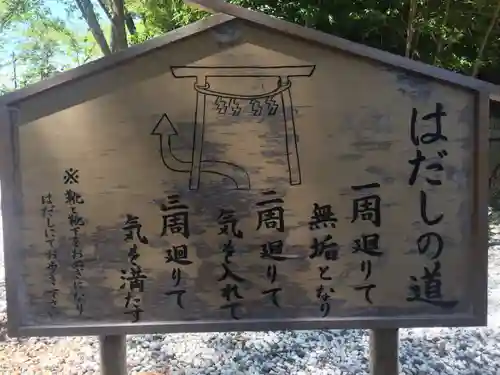 はだしの道
一周廻りて
無垢となり
二周廻りて
気を入れて
三周廻りて
気を満たす
※靴と靴下をおぬぎになり
はだしにておあるき下さい